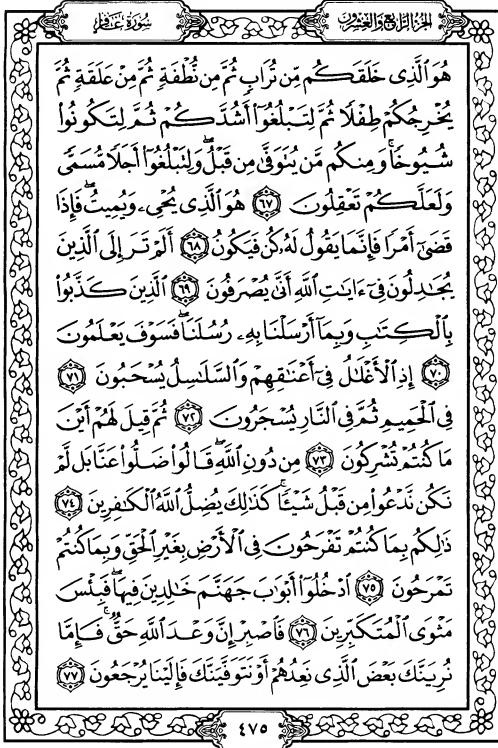 سورة غافر
الجزء الرابع والعشرون
هُوَ ٱلَّذِى خَلَقَكُم مِّن تُرَابٍ ثُمَّ مِن نُّطْفَةٍ ثُمَّ مِنْ عَلَقَةٍ ثُمَّ
يُخْرِجُكُمْ طِفْلًا ثُمَّ لِتَبْلُغُوٓا۟ أَشُدَّكُمْ ثُمَّ لِتَكُونُوا۟
شُيُوخًا ۚ وَمِنكُم مَّن يُتَوَفَّىٰ مِن قَبْلُ ۖ وَلِتَبْلُغُوٓا۟ أَجَلًا مُّسَمًّى
وَلَعَلَّكُمْ تَعْقِلُونَ ٦٧ هُوَ ٱلَّذِى يُحْىِۦ وَيُمِيتُ ۖ فَإِذَا
قَضَىٰٓ أَمْرًا فَإِنَّمَا يَقُولُ لَهُۥ كُن فَيَكُونُ ٦٨ أَلَمْ تَرَ إِلَى ٱلَّذِينَ
يُجَٰدِلُونَ فِىٓ ءَايَٰتِ ٱللَّهِ أَنَّىٰ يُصْرَفُونَ ٦٩ ٱلَّذِينَ كَذَّبُوا۟
بِٱلْكِتَٰبِ وَبِمَآ أَرْسَلْنَا بِهِۦ رُسُلَنَا ۖ فَسَوْفَ يَعْلَمُونَ
٧٠ إِذِ ٱلْأَغْلَٰلُ فِىٓ أَعْنَٰقِهِمْ وَٱلسَّلَٰسِلُ يُسْحَبُونَ ٧١
فِى ٱلْحَمِيمِ ثُمَّ فِى ٱلنَّارِ يُسْجَرُونَ ٧٢ ثُمَّ قِيلَ لَهُمْ أَيْنَ
مَا كُنتُمْ تُشْرِكُونَ ٧٣ مِن دُونِ ٱللَّهِ ۖ قَالُوا۟ ضَلُّوا۟ عَنَّا بَل لَّمْ
نَكُن نَّدْعُوا۟ مِن قَبْلُ شَيْـًٔا ۚ كَذَٰلِكَ يُضِلُّ ٱللَّهُ ٱلْكَٰفِرِينَ ٧٤
ذَٰلِكُم بِمَا كُنتُمْ تَفْرَحُونَ فِى ٱلْأَرْضِ بِغَيْرِ ٱلْحَقِّ وَبِمَا كُنتُمْ
تَمْرَحُونَ ٧٥ ٱدْخُلُوٓا۟ أَبْوَٰبَ جَهَنَّمَ خَٰلِدِينَ فِيهَا ۖ فَبِئْسَ
مَثْوَى ٱلْمُتَكَبِّرِينَ ٧٦ فَٱصْبِرْ إِنَّ وَعْدَ ٱللَّهِ حَقٌّ ۚ فَإِمَّا
نُرِيَنَّكَ بَعْضَ ٱلَّذِى نَعِدُهُمْ أَوْ نَتَوَفَّيَنَّكَ فَإِلَيْنَا يُرْجَعُونَ ٧٧
٤٧٥